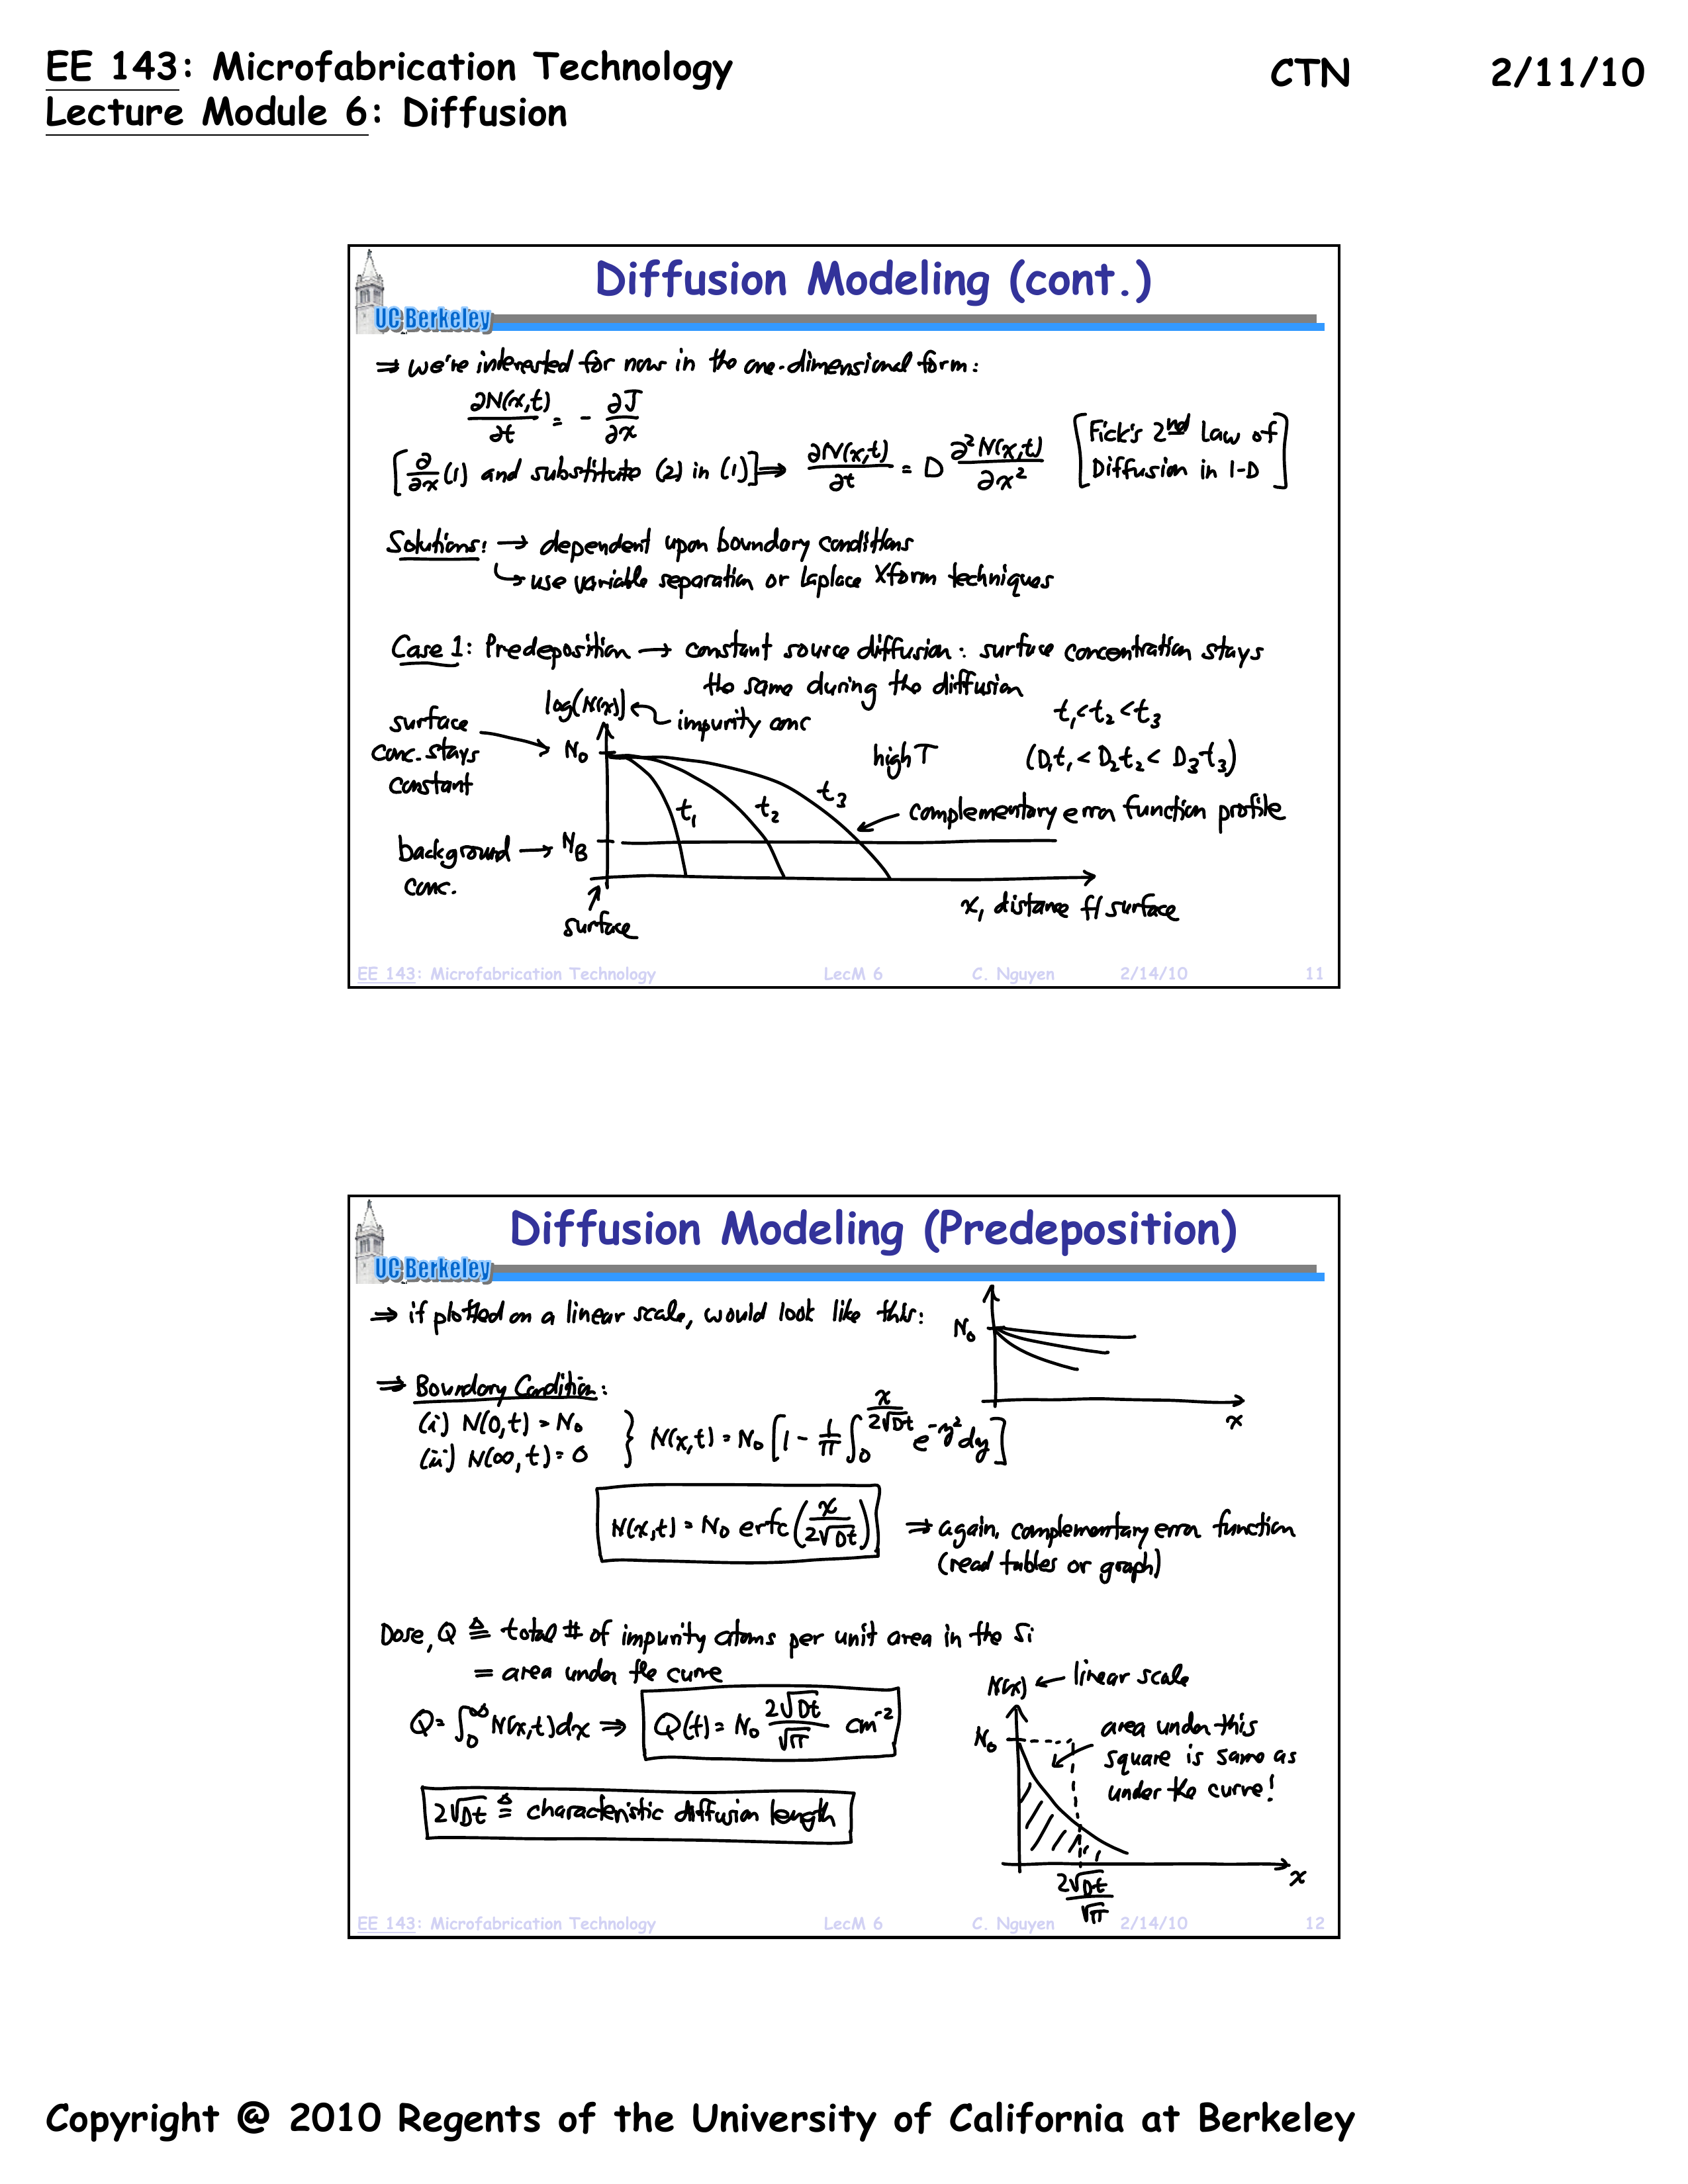 EE 143: Microfabrication Technology CTN 2/11/10
Lecture Module 6: Diffusion
Diffusion Modeling (cont.)
UC Berkeley
⇒ we're interested for now in the one-dimensional form:
∂N(x,t)/∂t = - ∂J/∂x
[∂/∂x (1) and substitute (2) in (1)] ⇒ ∂N(x,t)/∂t = D ∂²N(x,t)/∂x² [Fick's 2nd Law of Diffusion in 1-D]
Solutions: → dependent upon boundary conditions
↳ use variable separation or Laplace Xform techniques
Case 1: Predeposition → constant source diffusion: surface concentration stays
the same during the diffusion
log(N(x)) ← impurity conc
t₁<t₂<t₃
surface
conc. stays
constant
N₀
high T
(D₁t₁ < D₂t₂ < D₃t₃)
t₁
t₂
t₃
complementary error function profile
background
conc.
→ N_B
x, distance f/ surface
surface
EE 143: Microfabrication Technology LecM 6 C. Nguyen 2/14/10 11
Diffusion Modeling (Predeposition)
UC Berkeley
⇒ if plotted on a linear scale, would look like this:
N₀
x
⇒ Boundary Condition:
(i) N(0,t) = N₀
(ii) N(∞,t) = 0
} N(x,t) = N₀ [1 - 1/π ∫₀^(x/2√Dt) e^(-y²) dy]
N(x,t) = N₀ erfc (x/2√Dt)
⇒ again, complementary error function
(read tables or graph)
Dose, Q ≜ total # of impurity atoms per unit area in the Si
= area under the curve
Q = ∫₀^∞ N(x,t)dx ⇒ Q(t) = N₀ 2√Dt/√π cm⁻²
2√Dt ≜ characteristic diffusion length
N(x) ← linear scale
N₀
area under this
square is same as
under the curve!
x
2√Dt/√π
EE 143: Microfabrication Technology LecM 6 C. Nguyen 2/14/10 12
Copyright @ 2010 Regents of the University of California at Berkeley